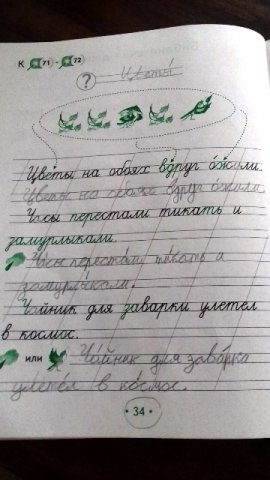 К 71) - 72)
? Цветы
Цветы на обоях вдруг ожили.
Цветы на обоях вдруг ожили.
Часы перестали тикать и
замурлыкали.
Часы перестали тикать и
замурлыкали.
Чайник для заварки улетел
в космос.
или Чайник для заварка
улетел в космос.
34